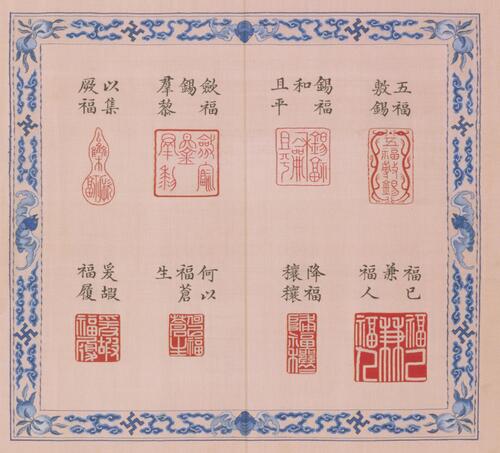 五福
敷錫
錫福
和
且平
斂福
錫
羣黎
以集
厥福
福己
兼
福人
降福
穰穰
何以
福蒼
生
爰嘏
福履